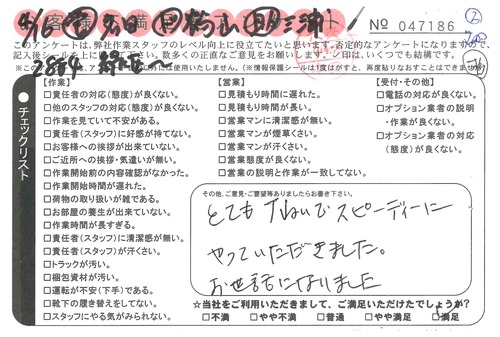 4/6
三浦
No 047186
このアンケートは、弊社作業スタッフのレベル向上に役立てたいと思います。否定的なアンケートになりますので、
記入後シール面にお貼り下さい。数多くの正直なご意見をお願いします。チェック印は、いくつでも結構です。
【作業】
□責任者の対応(態度)が良くない。
□他のスタッフの対応(態度)が良くない。
□作業を見ていて不安がある。
□責任者(スタッフ)に好感が持てない。
□お客様への挨拶が出来ていない。
□ご近所への挨拶・気遣いが無い。
□作業開始前の内容確認がなかった。
□作業開始時間が遅れた。
□荷物の取り扱いが雑である。
□お部屋の養生が出来ていない。
□作業時間が長すぎる。
□責任者(スタッフ)に清潔感が無い。
□責任者(スタッフ)が汗くさい。
□トラックが汚い。
□梱包資材が汚い。
□運転が不安(下手)である。
□靴下の履き替えをしてない。
□スタッフにやる気がみられない。
【営業】
□見積もりに遅れた。
□見積もり時間が長い。
□営業マンに清潔感が無い。
□営業マンが煙草くさい。
□営業マンが汗くさい。
□営業態度が良くない。
□営業の説明と作業が一致してない。
【受付・その他】
□電話の対応が良くない。
□オプション業者の説明
・作業が良くない。
□オプション業者の対応
(態度)が良くない。
● チェックリスト
その他、ご意見・ご要望等ありましたらお書き下さい。
とても ていねいで スピーディーに
やっていただきました。
お世話になりました
☆当社をご利用いただきまして、ご満足いただけたでしょうか?
□不満 □やや不満 □普通 □やや満足 □満足